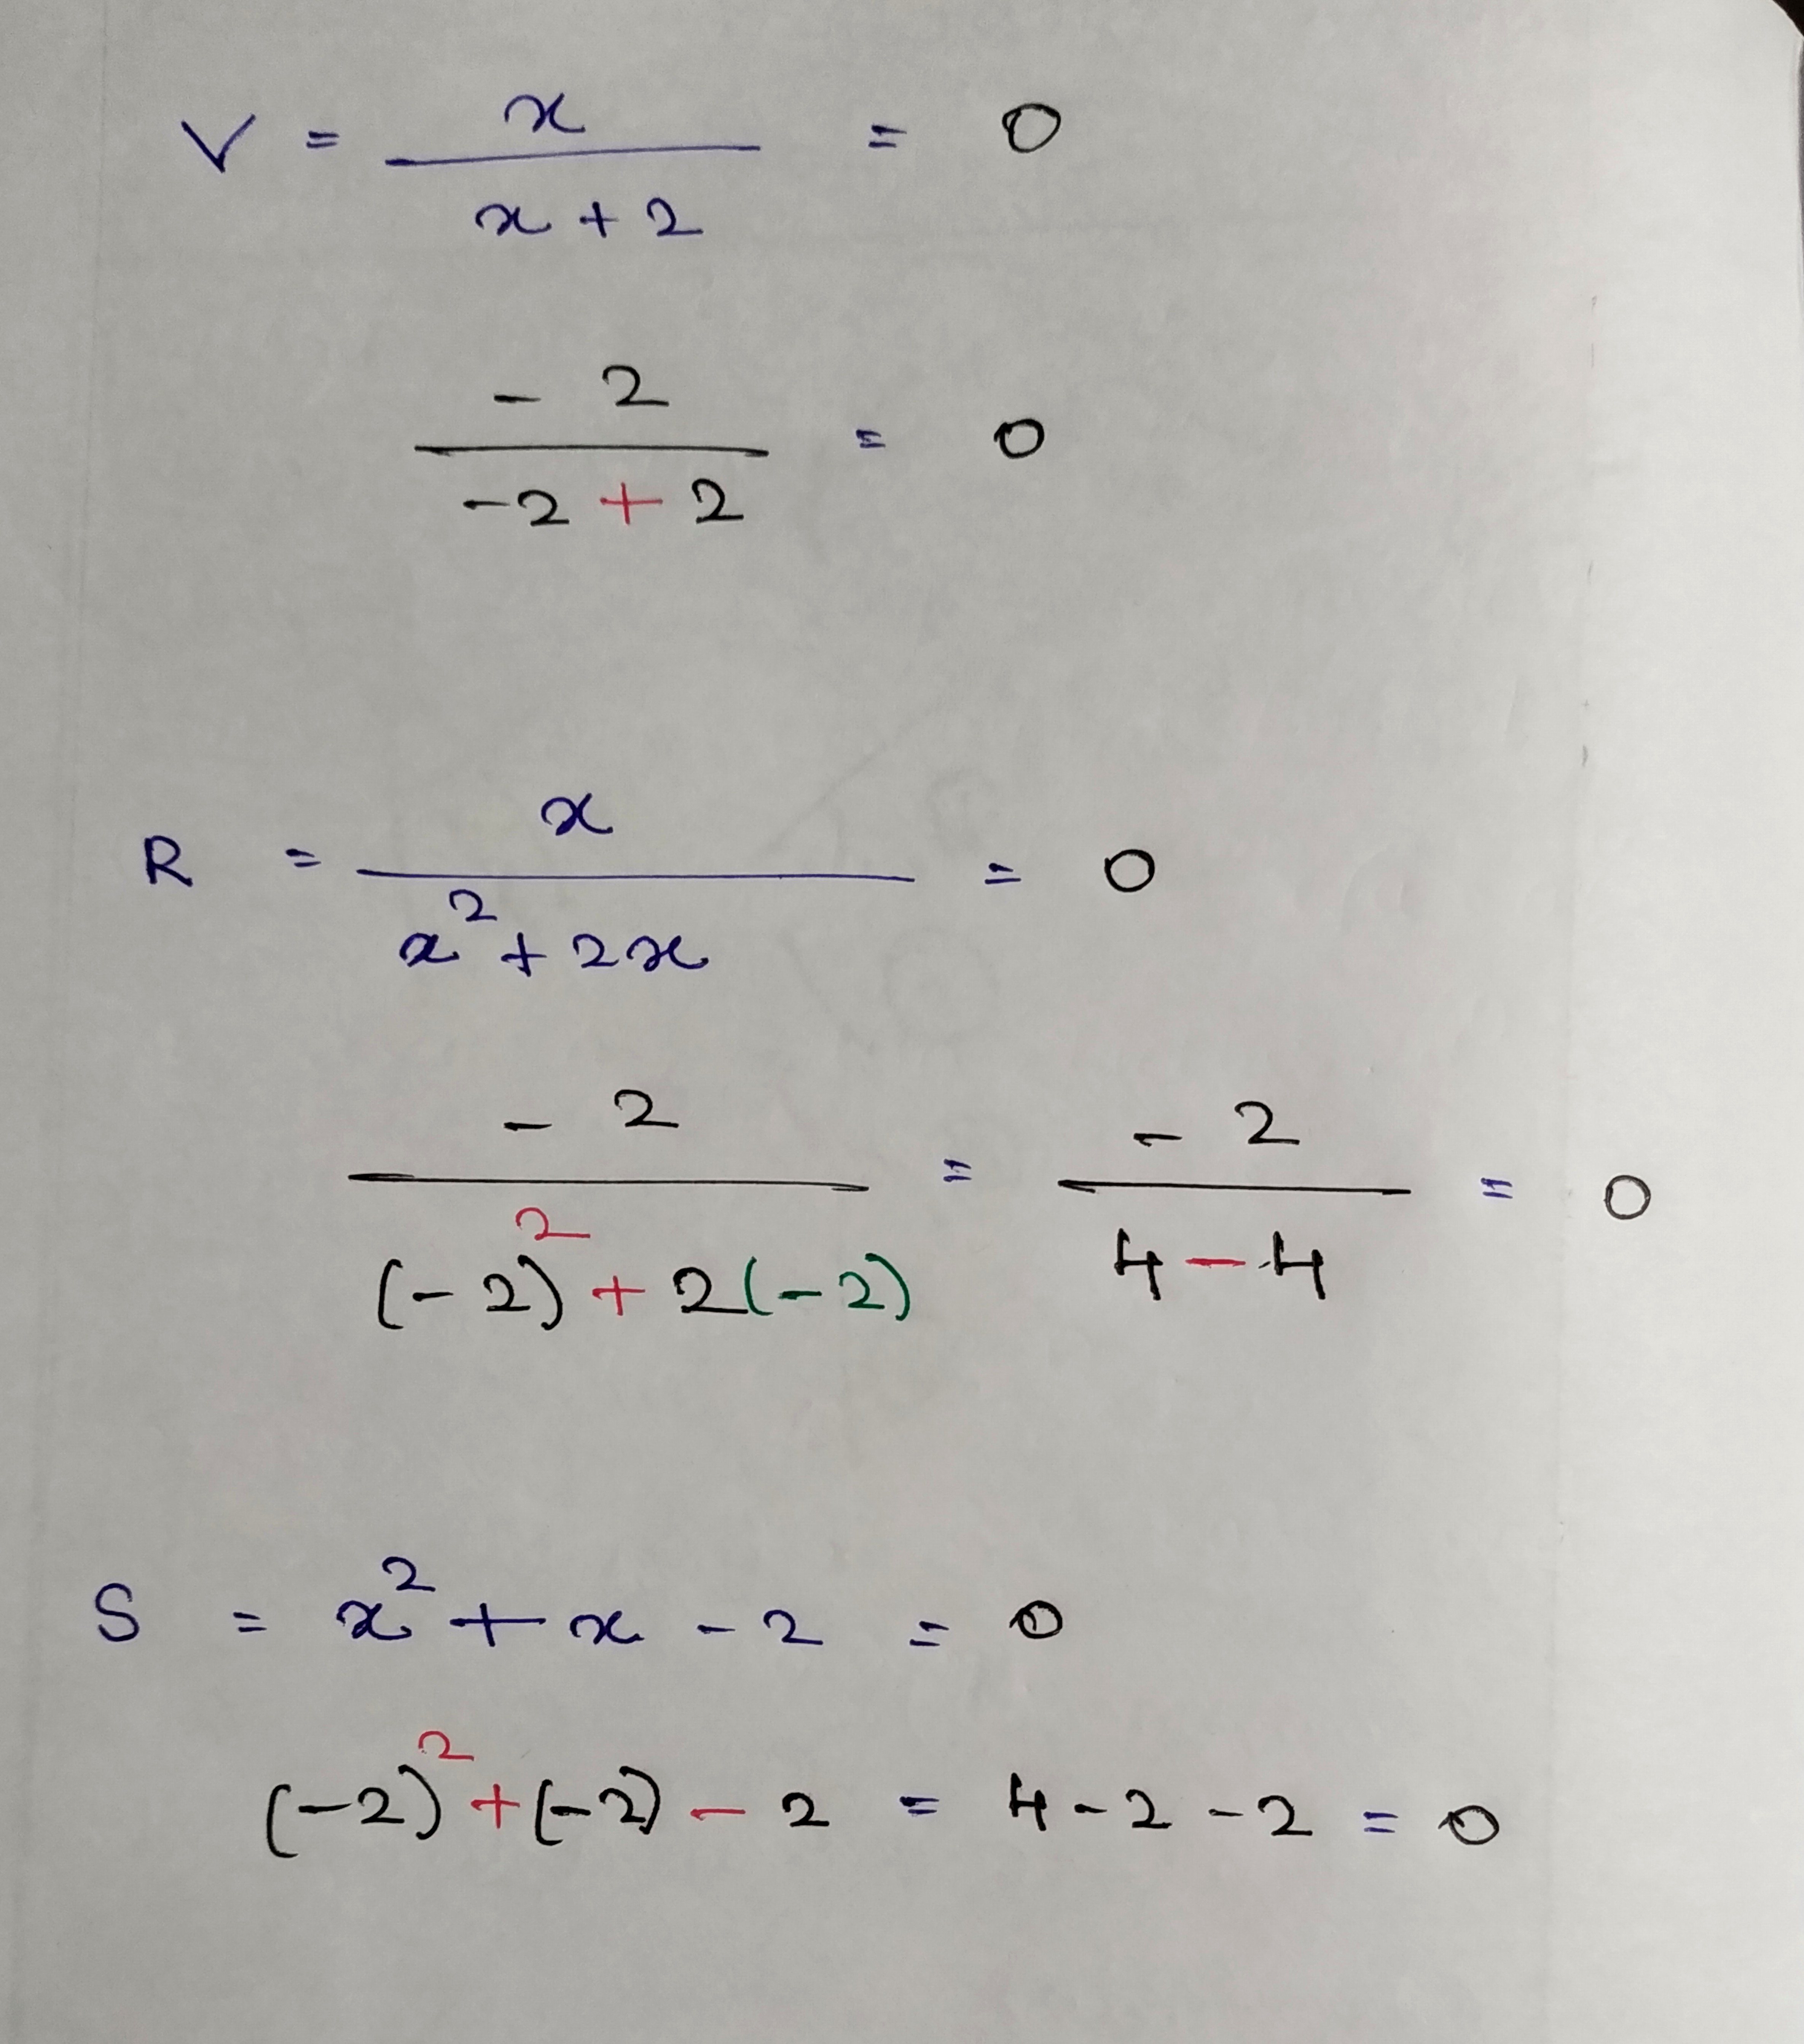 V = x / x + 2 = 0
- 2 / -2 + 2 = 0
R = x / x² + 2x = 0
- 2 / (- 2)² + 2(- 2) = - 2 / 4 - 4 = 0
S = x² + x - 2 = 0
(-2)² + (-2) - 2 = 4 - 2 - 2 = 0